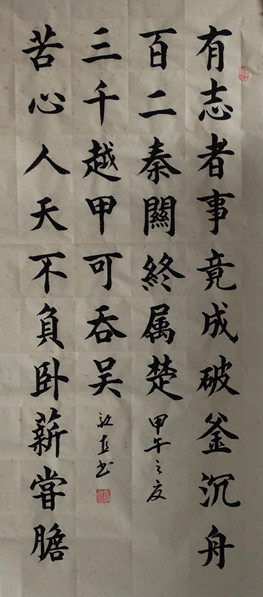 有志者事竟成破釜沉舟
百二秦關終属楚
苦心人天不負卧薪嘗膽
三千越甲可吞吴
甲午之夏